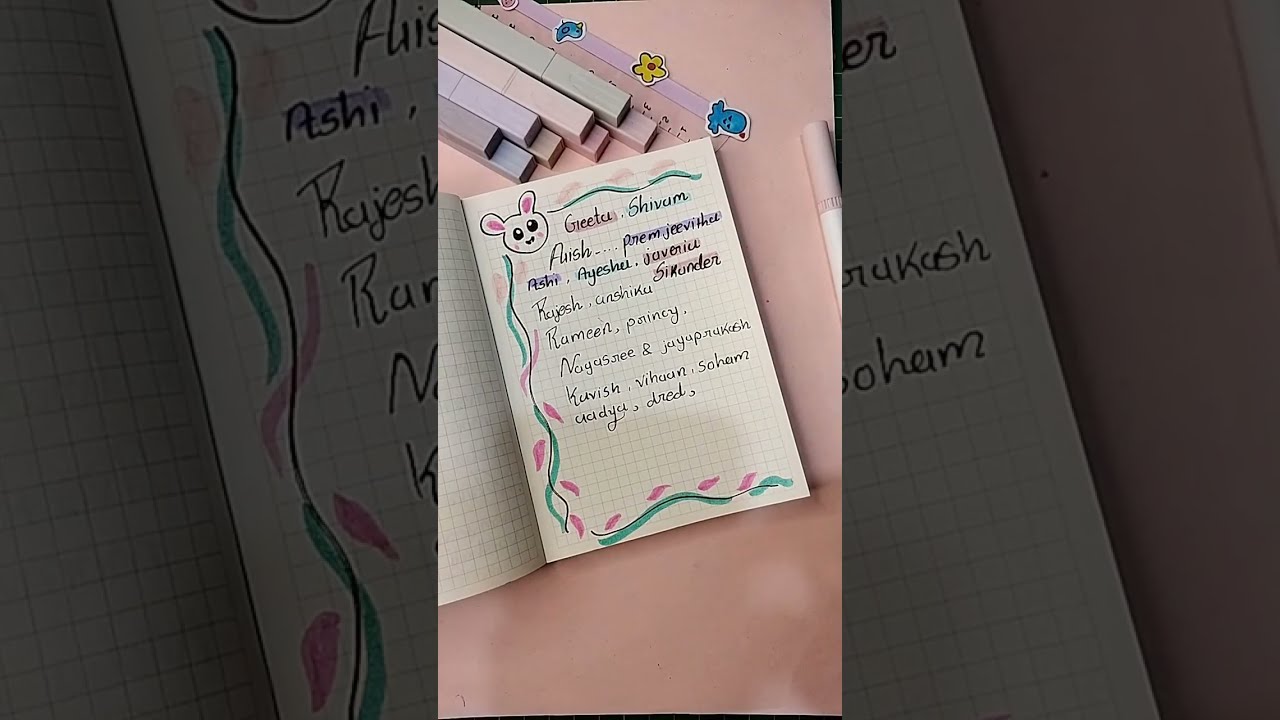 Geeta, Shivam
Aish.... premjeevitha
Ashi, Ayesha, javeria
Sikander
Rajesh, anshika
Rameen, princy,
Nayasree & jayaprakash
Kavish, vihaan, soham
aadya, dred,